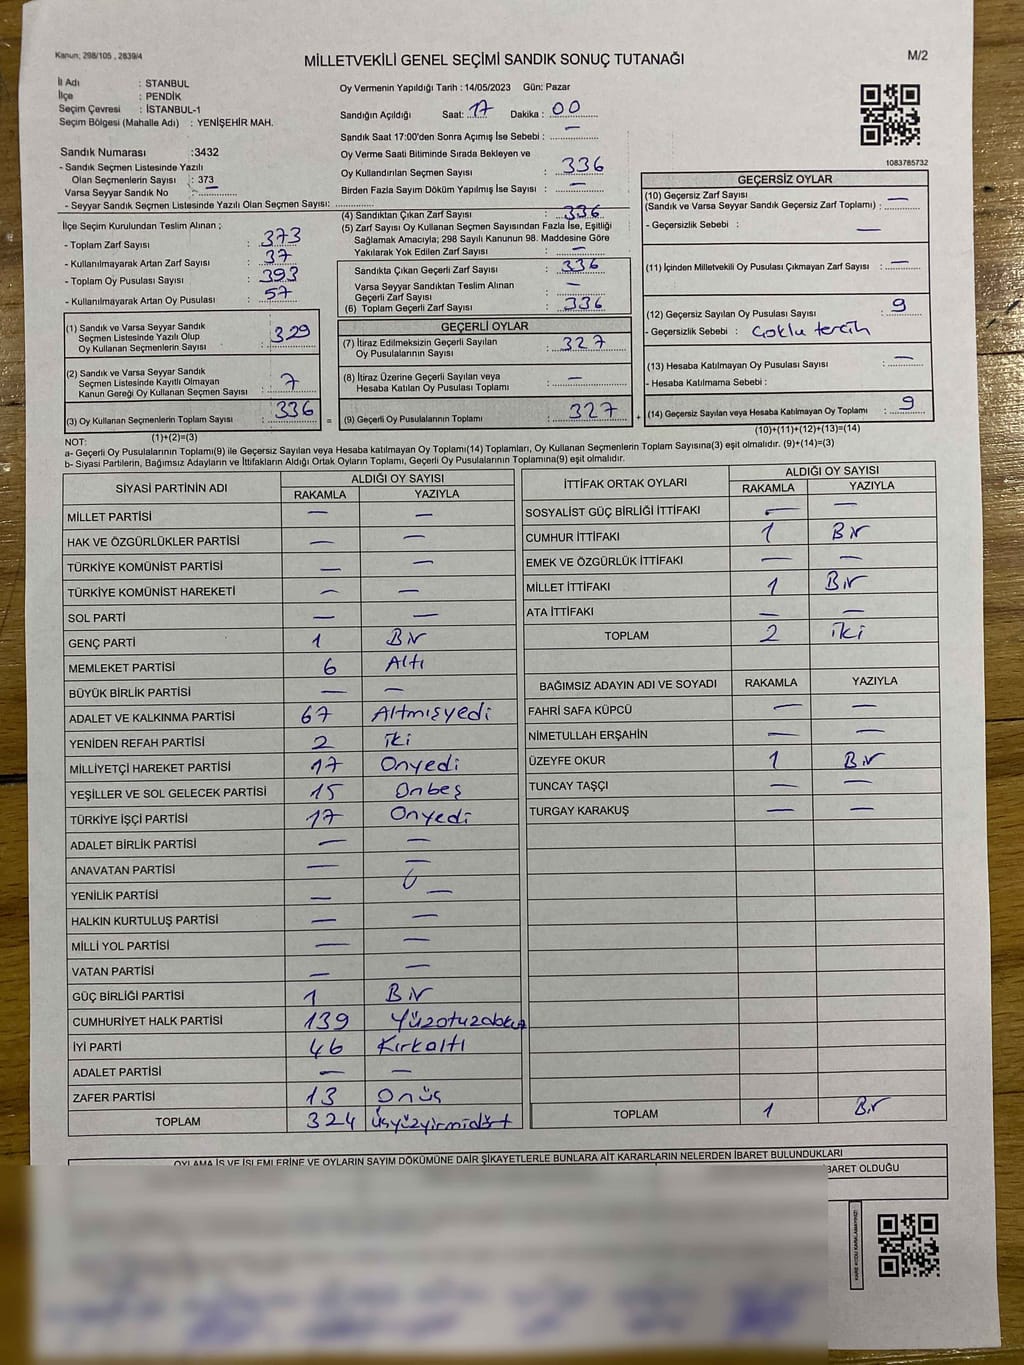 Kanun; 298/105 , 2839/4
MİLLETVEKİLİ GENEL SEÇİMİ SANDIK SONUÇ TUTANAĞI
M/2
İl Adı : STANBUL
İlçe : PENDİK
Seçim Çevresi : İSTANBUL-1
Seçim Bölgesi (Mahalle Adı) : YENİŞEHİR MAH.
Sandık Numarası :3432
- Sandık Seçmen Listesinde Yazılı
Olan Seçmenlerin Sayısı : 373
Varsa Seyyar Sandık No : —
- Seyyar Sandık Seçmen Listesinde Yazılı Olan Seçmen Sayısı:
Oy Vermenin Yapıldığı Tarih : 14/05/2023 Gün: Pazar
Sandığın Açıldığı Saat: 17 Dakika : 00
Sandık Saat 17:00'den Sonra Açımış İse Sebebi : —
Oy Verme Saati Bitiminde Sırada Bekleyen ve
Oy Kullandırılan Seçmen Sayısı : 336
Birden Fazla Sayım Döküm Yapılmış İse Sayısı : —
1083785732
İlçe Seçim Kurulundan Teslim Alınan ;
- Toplam Zarf Sayısı : 373
- Kullanılmayarak Artan Zarf Sayısı : 37
- Toplam Oy Pusulası Sayısı : 393
- Kullanılmayarak Artan Oy Pusulası : 57
(1) Sandık ve Varsa Seyyar Sandık
Seçmen Listesinde Yazılı Olup
Oy Kullanan Seçmenlerin Sayısı : 329
(2) Sandık ve Varsa Seyyar Sandık
Seçmen Listesinde Kayıtlı Olmayan
Kanun Gereği Oy Kullanan Seçmen Sayısı : 7
(3) Oy Kullanan Seçmenlerin Toplam Sayısı : 336
(1)+(2)=(3)
(4) Sandıktan Çıkan Zarf Sayısı : 336
(5) Zarf Sayısı Oy Kullanan Seçmen Sayısından Fazla İse, Eşitliği
Sağlamak Amacıyla; 298 Sayılı Kanunun 98. Maddesine Göre
Yakılarak Yok Edilen Zarf Sayısı : —
Sandıkta Çıkan Geçerli Zarf Sayısı : 336
Varsa Seyyar Sandıktan Teslim Alınan
Geçerli Zarf Sayısı : —
(6) Toplam Geçerli Zarf Sayısı : 336
GEÇERLİ OYLAR
(7) İtiraz Edilmeksizin Geçerli Sayılan
Oy Pusulalarının Sayısı : 327
(8) İtiraz Üzerine Geçerli Sayılan veya
Hesaba Katılan Oy Pusulası Toplamı : —
= (9) Geçerli Oy Pusulalarının Toplamı : 327
GEÇERSİZ OYLAR
(10) Geçersiz Zarf Sayısı
(Sandık ve Varsa Seyyar Sandık Geçersiz Zarf Toplamı) : —
- Geçersizlik Sebebi : —
(11) İçinden Milletvekili Oy Pusulası Çıkmayan Zarf Sayısı : —
(12) Geçersiz Sayılan Oy Pusulası Sayısı : 9
- Geçersizlik Sebebi : Çoklu tercih
(13) Hesaba Katılmayan Oy Pusulası Sayısı : —
- Hesaba Katılmama Sebebi :
+ (14) Geçersiz Sayılan veya Hesaba Katılmayan Oy Toplamı : 9
(10)+(11)+(12)+(13)=(14)
NOT:
a- Geçerli Oy Pusulalarının Toplamı(9) ile Geçersiz Sayılan veya Hesaba katılmayan Oy Toplamı(14) Toplamları, Oy Kullanan Seçmenlerin Toplam Sayısına(3) eşit olmalıdır. (9)+(14)=(3)
b- Siyasi Partilerin, Bağımsız Adayların ve İttifakların Aldığı Ortak Oyların Toplamı, Geçerli Oy Pusulalarının Toplamına(9) eşit olmalıdır.
SİYASİ PARTİNİN ADI ALDIĞI OY SAYISI
RAKAMLA YAZIYLA
MİLLET PARTİSİ — —
HAK VE ÖZGÜRLÜKLER PARTİSİ — —
TÜRKİYE KOMÜNİST PARTİSİ — —
TÜRKİYE KOMÜNİST HAREKETİ — —
SOL PARTİ — —
GENÇ PARTİ 1 Bir
MEMLEKET PARTİSİ 6 Altı
BÜYÜK BİRLİK PARTİSİ — —
ADALET VE KALKINMA PARTİSİ 67 Altmışyedi
YENİDEN REFAH PARTİSİ 2 iki
MİLLİYETÇİ HAREKET PARTİSİ 17 Onyedi
YEŞİLLER VE SOL GELECEK PARTİSİ 15 Onbeş
TÜRKİYE İŞÇİ PARTİSİ 17 Onyedi
ADALET BİRLİK PARTİSİ — —
ANAVATAN PARTİSİ — —
YENİLİK PARTİSİ — —
HALKIN KURTULUŞ PARTİSİ — —
MİLLİ YOL PARTİSİ — —
VATAN PARTİSİ — —
GÜÇ BİRLİĞİ PARTİSİ 1 Bir
CUMHURİYET HALK PARTİSİ 139 Yüzotuzdokuz
İYİ PARTİ 46 Kırkaltı
ADALET PARTİSİ — —
ZAFER PARTİSİ 13 Onüç
TOPLAM 324 üçyüzyirmidört
İTTİFAK ORTAK OYLARI ALDIĞI OY SAYISI
RAKAMLA YAZIYLA
SOSYALİST GÜÇ BİRLİĞİ İTTİFAKI — —
CUMHUR İTTİFAKI 1 Bir
EMEK VE ÖZGÜRLÜK İTTİFAKI — —
MİLLET İTTİFAKI 1 Bir
ATA İTTİFAKI — —
TOPLAM 2 iki
BAĞIMSIZ ADAYIN ADI VE SOYADI RAKAMLA YAZIYLA
FAHRİ SAFA KÜPCÜ — —
NİMETULLAH ERŞAHİN — —
ÜZEYFE OKUR 1 Bir
TUNCAY TAŞÇI — —
TURGAY KARAKUŞ — —
TOPLAM 1 Bir
OYLAMA İŞ VE İŞLEMLERİNE VE OYLARIN SAYIM DÖKÜMÜNE DAİR ŞİKAYETLERLE BUNLARA AİT KARARLARIN NELERDEN İBARET BULUNDUKLARI
İBARET OLDUĞU